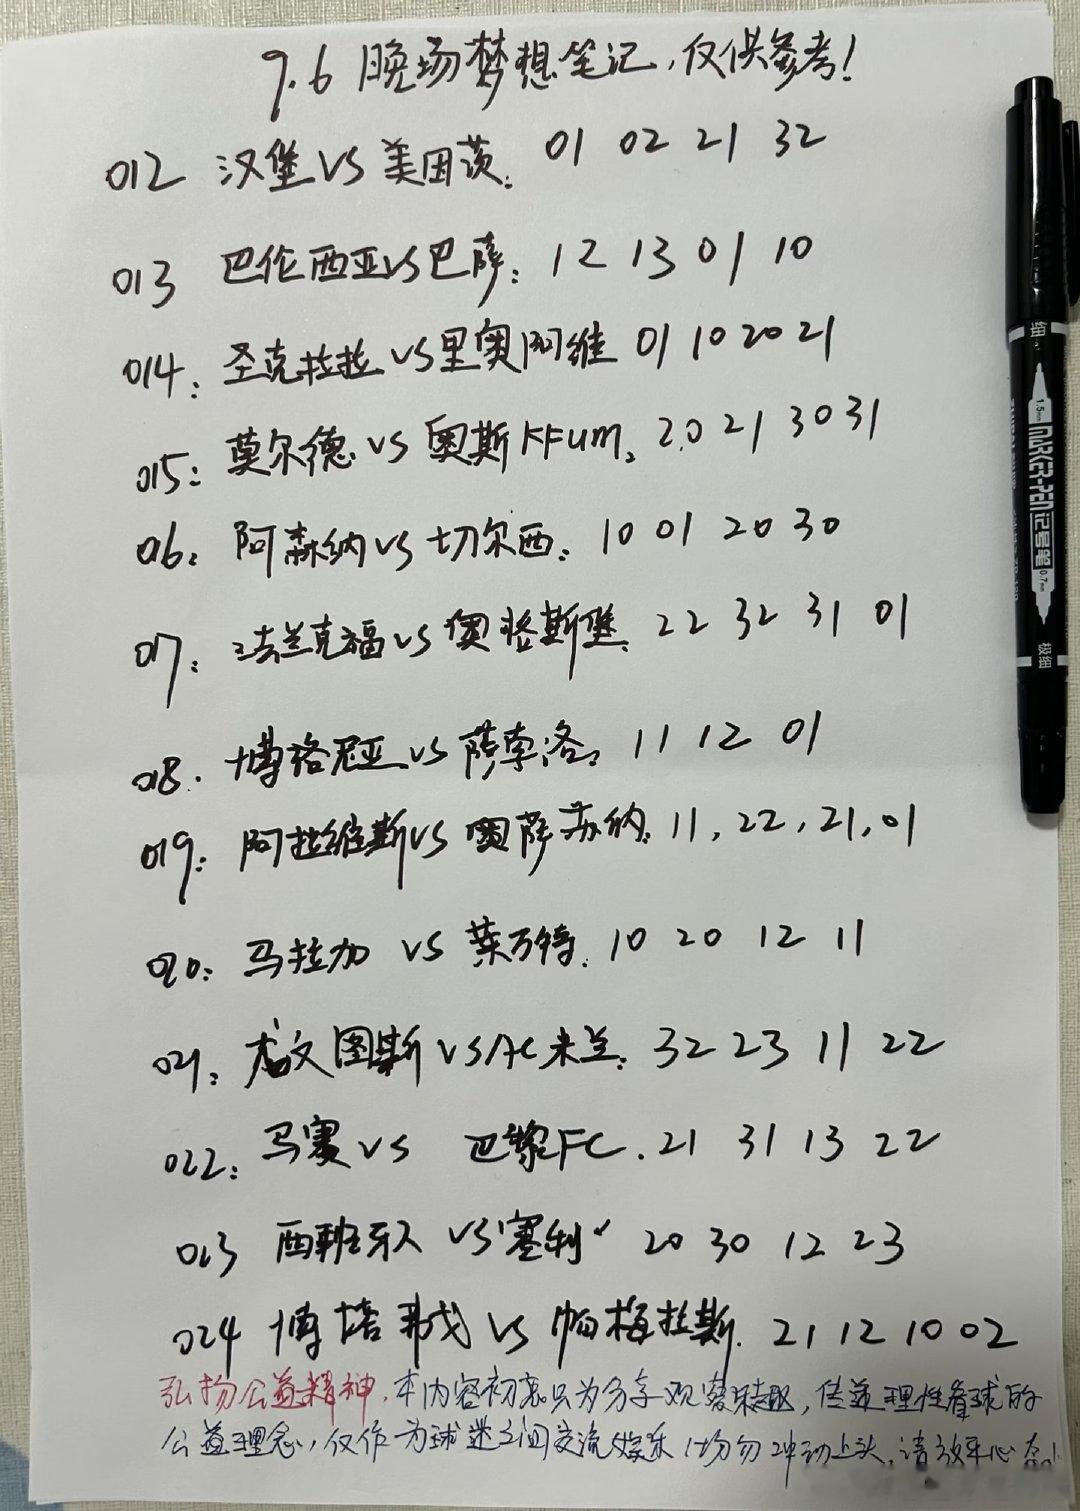 9.6 晚场梦想笔记,仅供参考!
012 汉堡VS美因茨: 01 02 21 32
013 巴伦西亚VS巴萨: 12 13 01 10
014: 圣克拉拉 VS里奥阿维 01 10 20 21
015: 莫尔德 VS 奥斯KFUM: 20 21 30 31
016: 阿森纳VS切尔西: 10 01 20 30
017: 法兰克福VS奥格斯堡: 22 32 31 01
018. 博格尼亚VS萨索洛: 11 12 01
019: 阿拉维斯VS奥萨苏纳: 11, 22, 21, 01
020: 马拉加 VS 莱万特: 10 20 12 11
021: 尤文图斯VSAC米兰: 32 23 11 22
022: 马赛VS 巴黎FC. 21 31 13 22
023 西班牙人 VS"塞利" 20 30 12 23
024 博塔弗戈VS帕梅拉斯. 21 12 10 02
弘扬公益精神,本内容初衷只为分享观赛乐趣,传递理性看球的
公益理念,仅作为球迷之间交流娱乐 切勿冲动上头,请放平心态
1.5mm MARKER-PEN 记号笔 0.7mm
细
极细